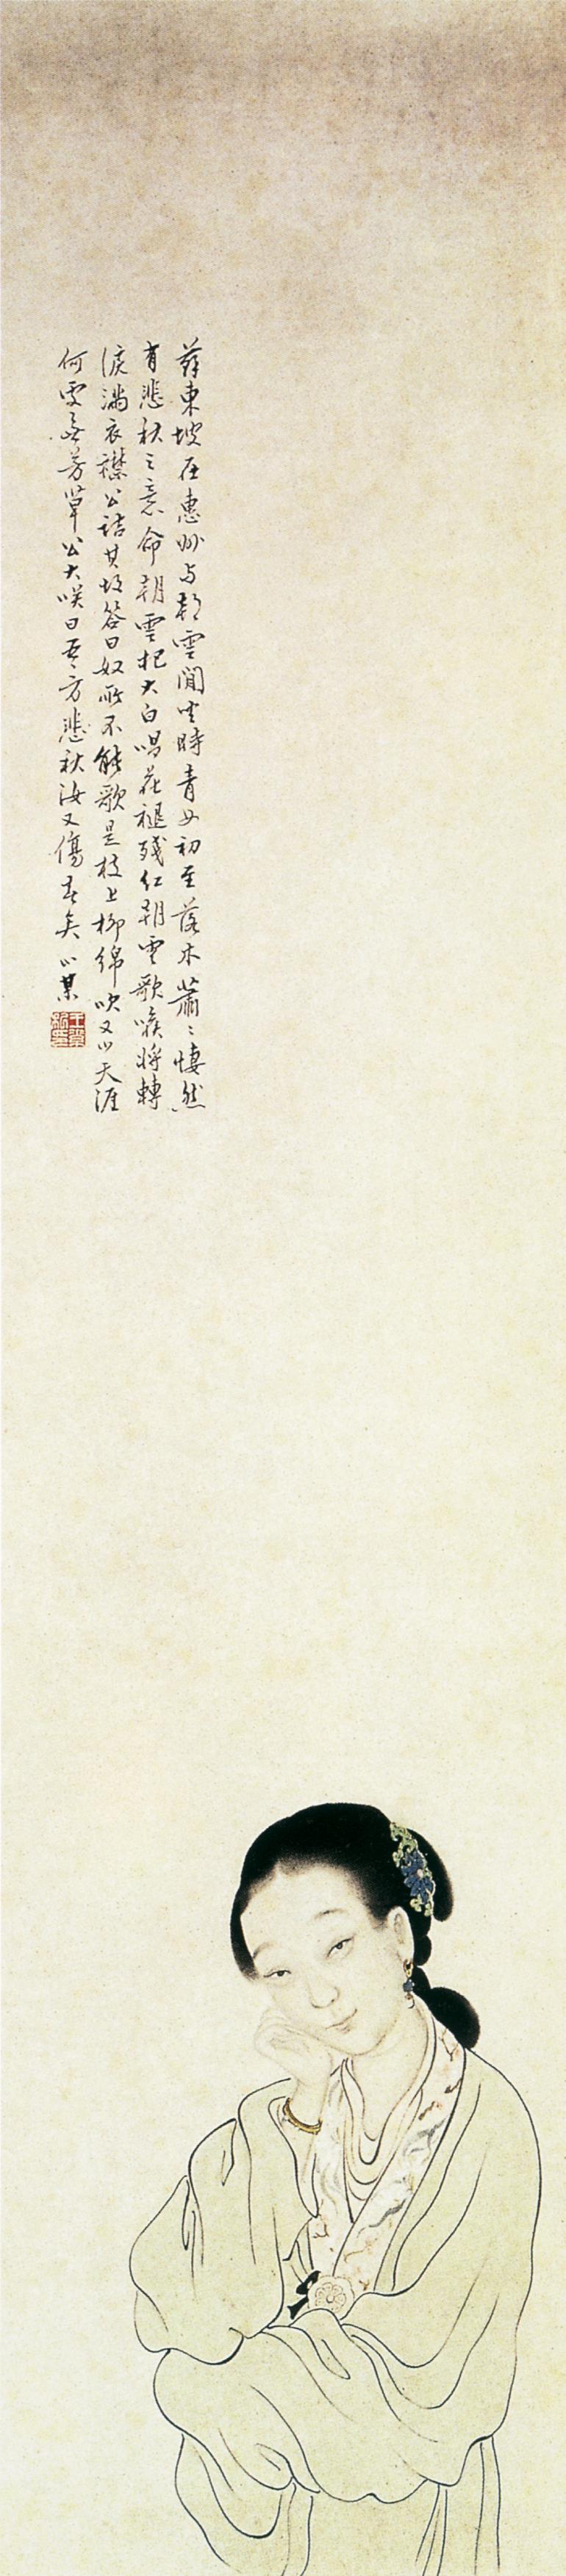 蘇東坡在惠州与朝雲閒坐時青女初至落木蕭〻悽然
有悲秋之意命朝雲把大白唱花褪殘红朝雲歌喉將轉
淚滿衣襟公詰其故答曰奴所不能歌是枝上柳綿吹又少天涯
何處無芳草公大咲曰吾方悲秋汝又傷春矣小某